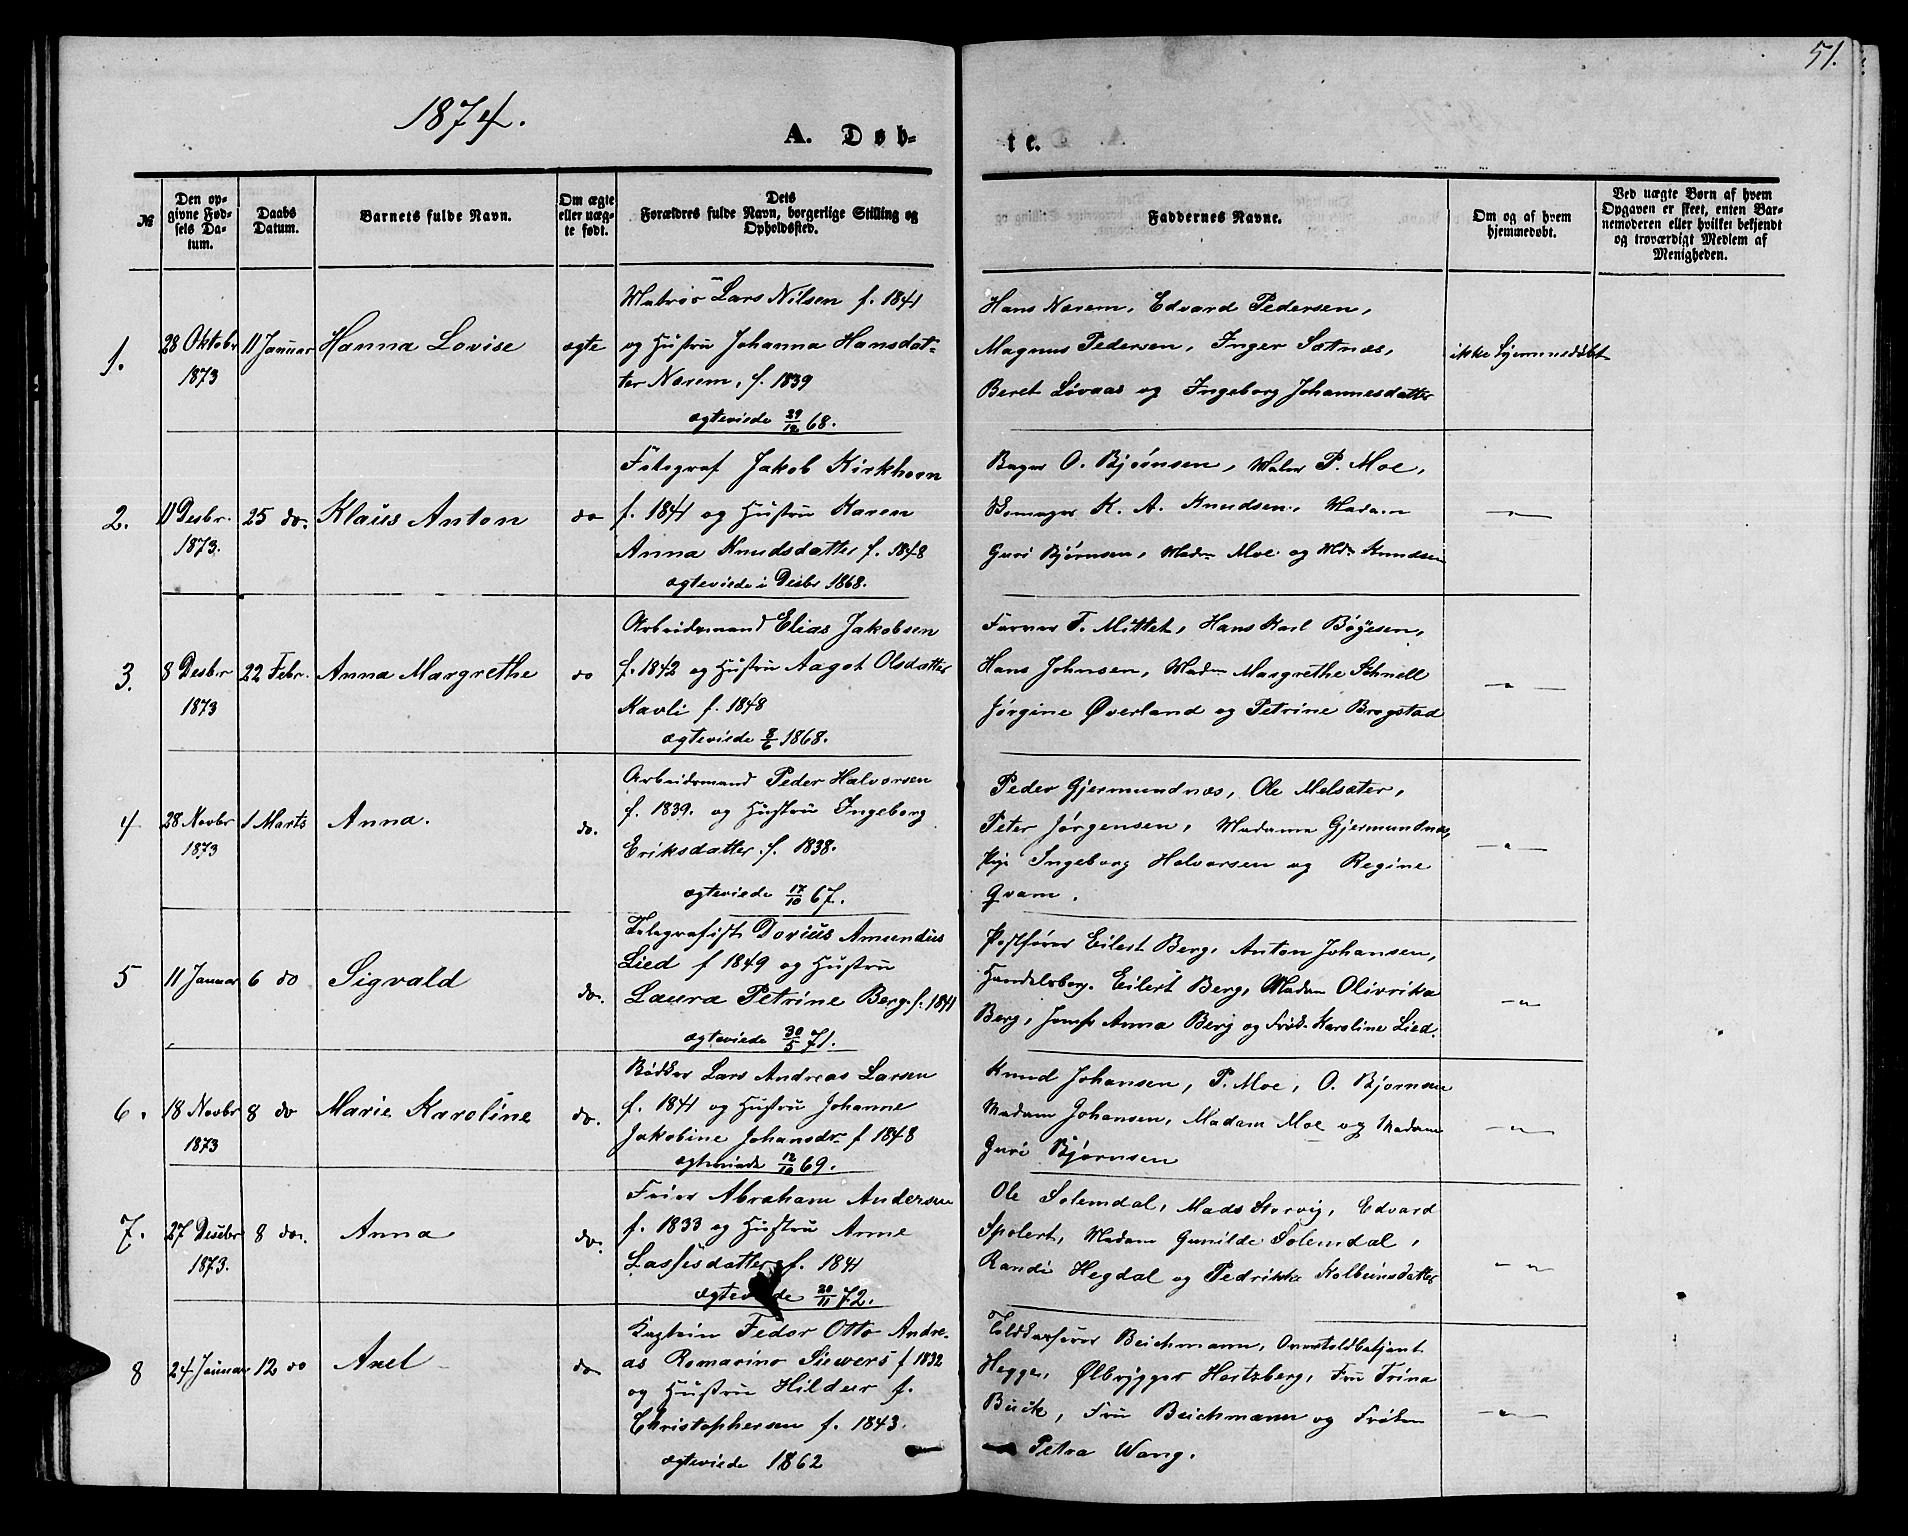 51.
1874.
A. Døb-
te.
№
Den op-
givne Fød-
sels Da-
tum.
Daabs
Datum.
Barnets fulde Navn.
Om ægte
eller uæg-
te født.
Dets
Forældres fulde Navn, borgerlige Stilling og
Opholdssted.
Faddernes Navne.
Om og af hvem
hjemmedøbt.
Ved uægte Børn af hvem
Opgaven er skeet, enten Bar-
nemoderen eller hvilket bekjendt
og troværdigt Medlem af
Menigheden.
1.
28 Oktobr
1873
11 Januar
Hanna Lovise
ægte
Matros Lars Nilsen f. 1841
og Hustru Johanna Hansdat-
ter Nerem, f. 1839
ægteviede 29/12 68.
Hans Nerem, Edvard Pedersen,
Magnus Pedersen, Inger Sætnæs,
Beret Løvaas og Ingeborg Johannesdatter
ikke hjemmedøbt
2.
11 Desbr.
1873.
25 do.
Klaus Anton
do
Fotograf Jakob Kirkhorn
f. 1841 og Hustru Karen
Anna Knudsdatter f. 1848
ægteviede i Desbr 1868.
Bager O. Bjørnsen, Maler P. Moe,
K. A. Knudsen, Madam
Guri Bjørnsen, Madm Moe og Mdm Knudsen
—"—
3.
8 Desbr
1873
22 Febr.
Anna Margrethe
do
Arbeidsmand Elias Jakobsen
f. 1842 og Hustru Aagot Olsdatter
Kavli f. 1848
ægteviede 8/6 1868.
Farver T. Mittet, Hans Karl Bøyesen,
Hans Johnsen, Madm Margrethe Schnell
Jørgine Øverland og Petrine Brogstad
—"—
4
28 Novbr
1873
1 Marts
Anna.
do.
Arbeidsmand Peder Halvorsen
f. 1839. og Hustru Ingeborg
Eriksdatter f. 1838.
ægteviede 17/10 67.
Peder Gjermundnæs, Ole Melsæter,
Peter Jørgensen, Madame Gjermundnæs,
Pige Ingeborg Halvorsen og Regine
Qvam.
—"—
5
11 Januar
6 do
Sigvald
do.
Telegrafist Dorius Amundus
Lied f 1849 og Hustru
Laura Petrine Berg f. 1841
ægteviede 30/5 71.
Postfører Eilert Berg, Anton Johansen,
Handelsbg. Eilert Berg, Madam Olivrika
Berg, Jomfr Anna Berg og Frøk. Karoline Lied.
—"—
6.
18 Novbr
1873
8 do
Marie Karoline
do.
Bødker Lars Andreas Larsen
f. 1841 og Hustru Johanne
Jakobine Johansdr f 1848
ægteviede 12/10 69.
Knud Johansen, P. Moe, O. Bjørnsen
Madam Johansen, Madam Moe og Madam
Guri Bjørnsen
—"—
7.
27 Desebr
1873.
8 do.
Anna
do.
Abraham Andersen
f. 1833 og Hustru Anne
Lassesdatter f. 1841
ægteviede 20/11 72.
Ole Solemdal, Mads Storvig, Edvard
Spolert, Madam Gunilde Solemdal,
Randi Hegdal og Pedrikke Kolbeinsdatter
—"—
8
24 Januar
12 do
Axel
do
Kaptein Fedor Otto Andre-
as Romarino Siewers f 1832
og Hustru Hildur f.
Christophersen f. 1843.
ægteviede 1862
Toldkasserer Beichmann, Overtoldbetjent
Hegge, Ølbrygger Hertzberg, Fru Trina
Buck, Fru Beichmann og Frøken
Petra Wang.
—"—